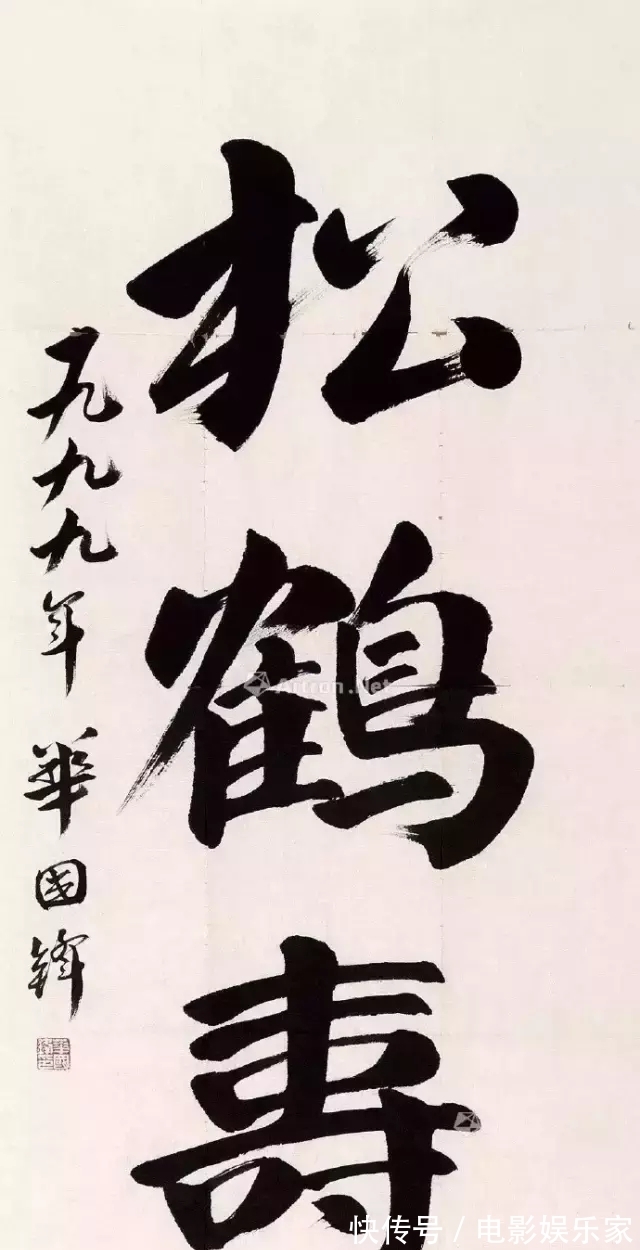 松鶴壽
一九九九年 華國鋒
Artron.Net
快传号 / 电影娱乐家